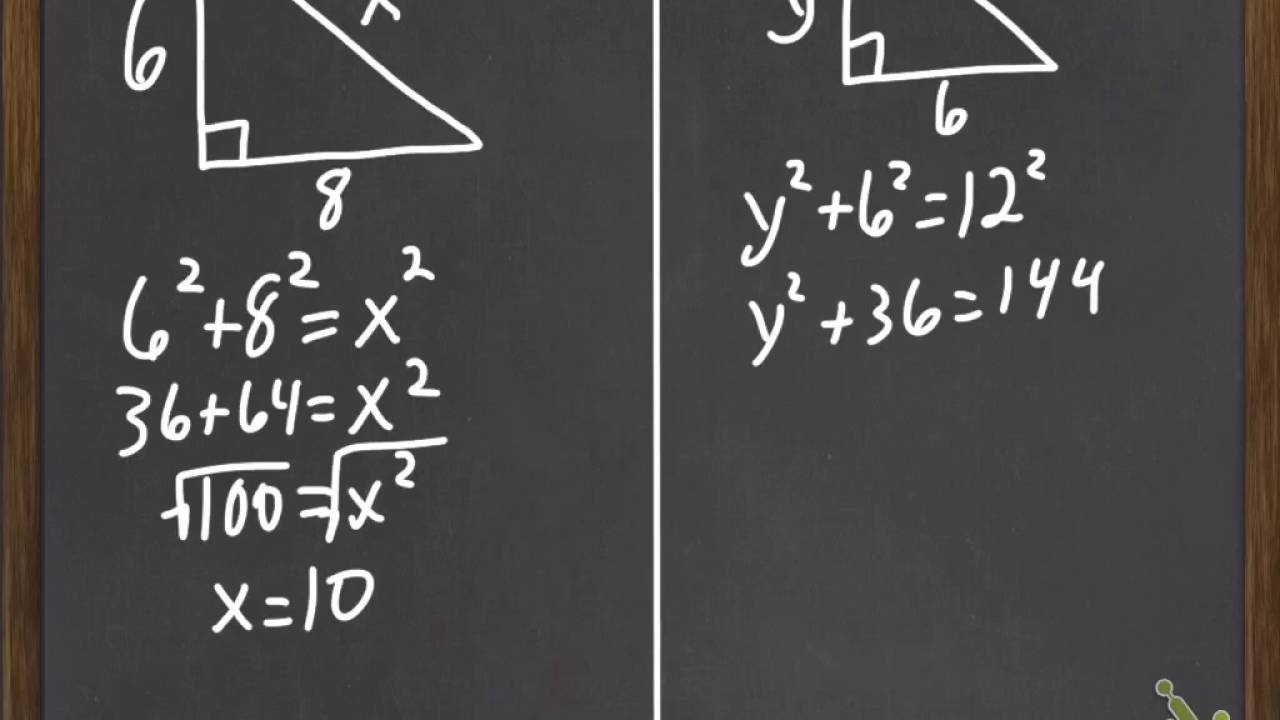 6
x
8
6²+8²=x²
36+64=x²
√100=√x²
x=10
y
6
y²+6²=12²
y²+36=144